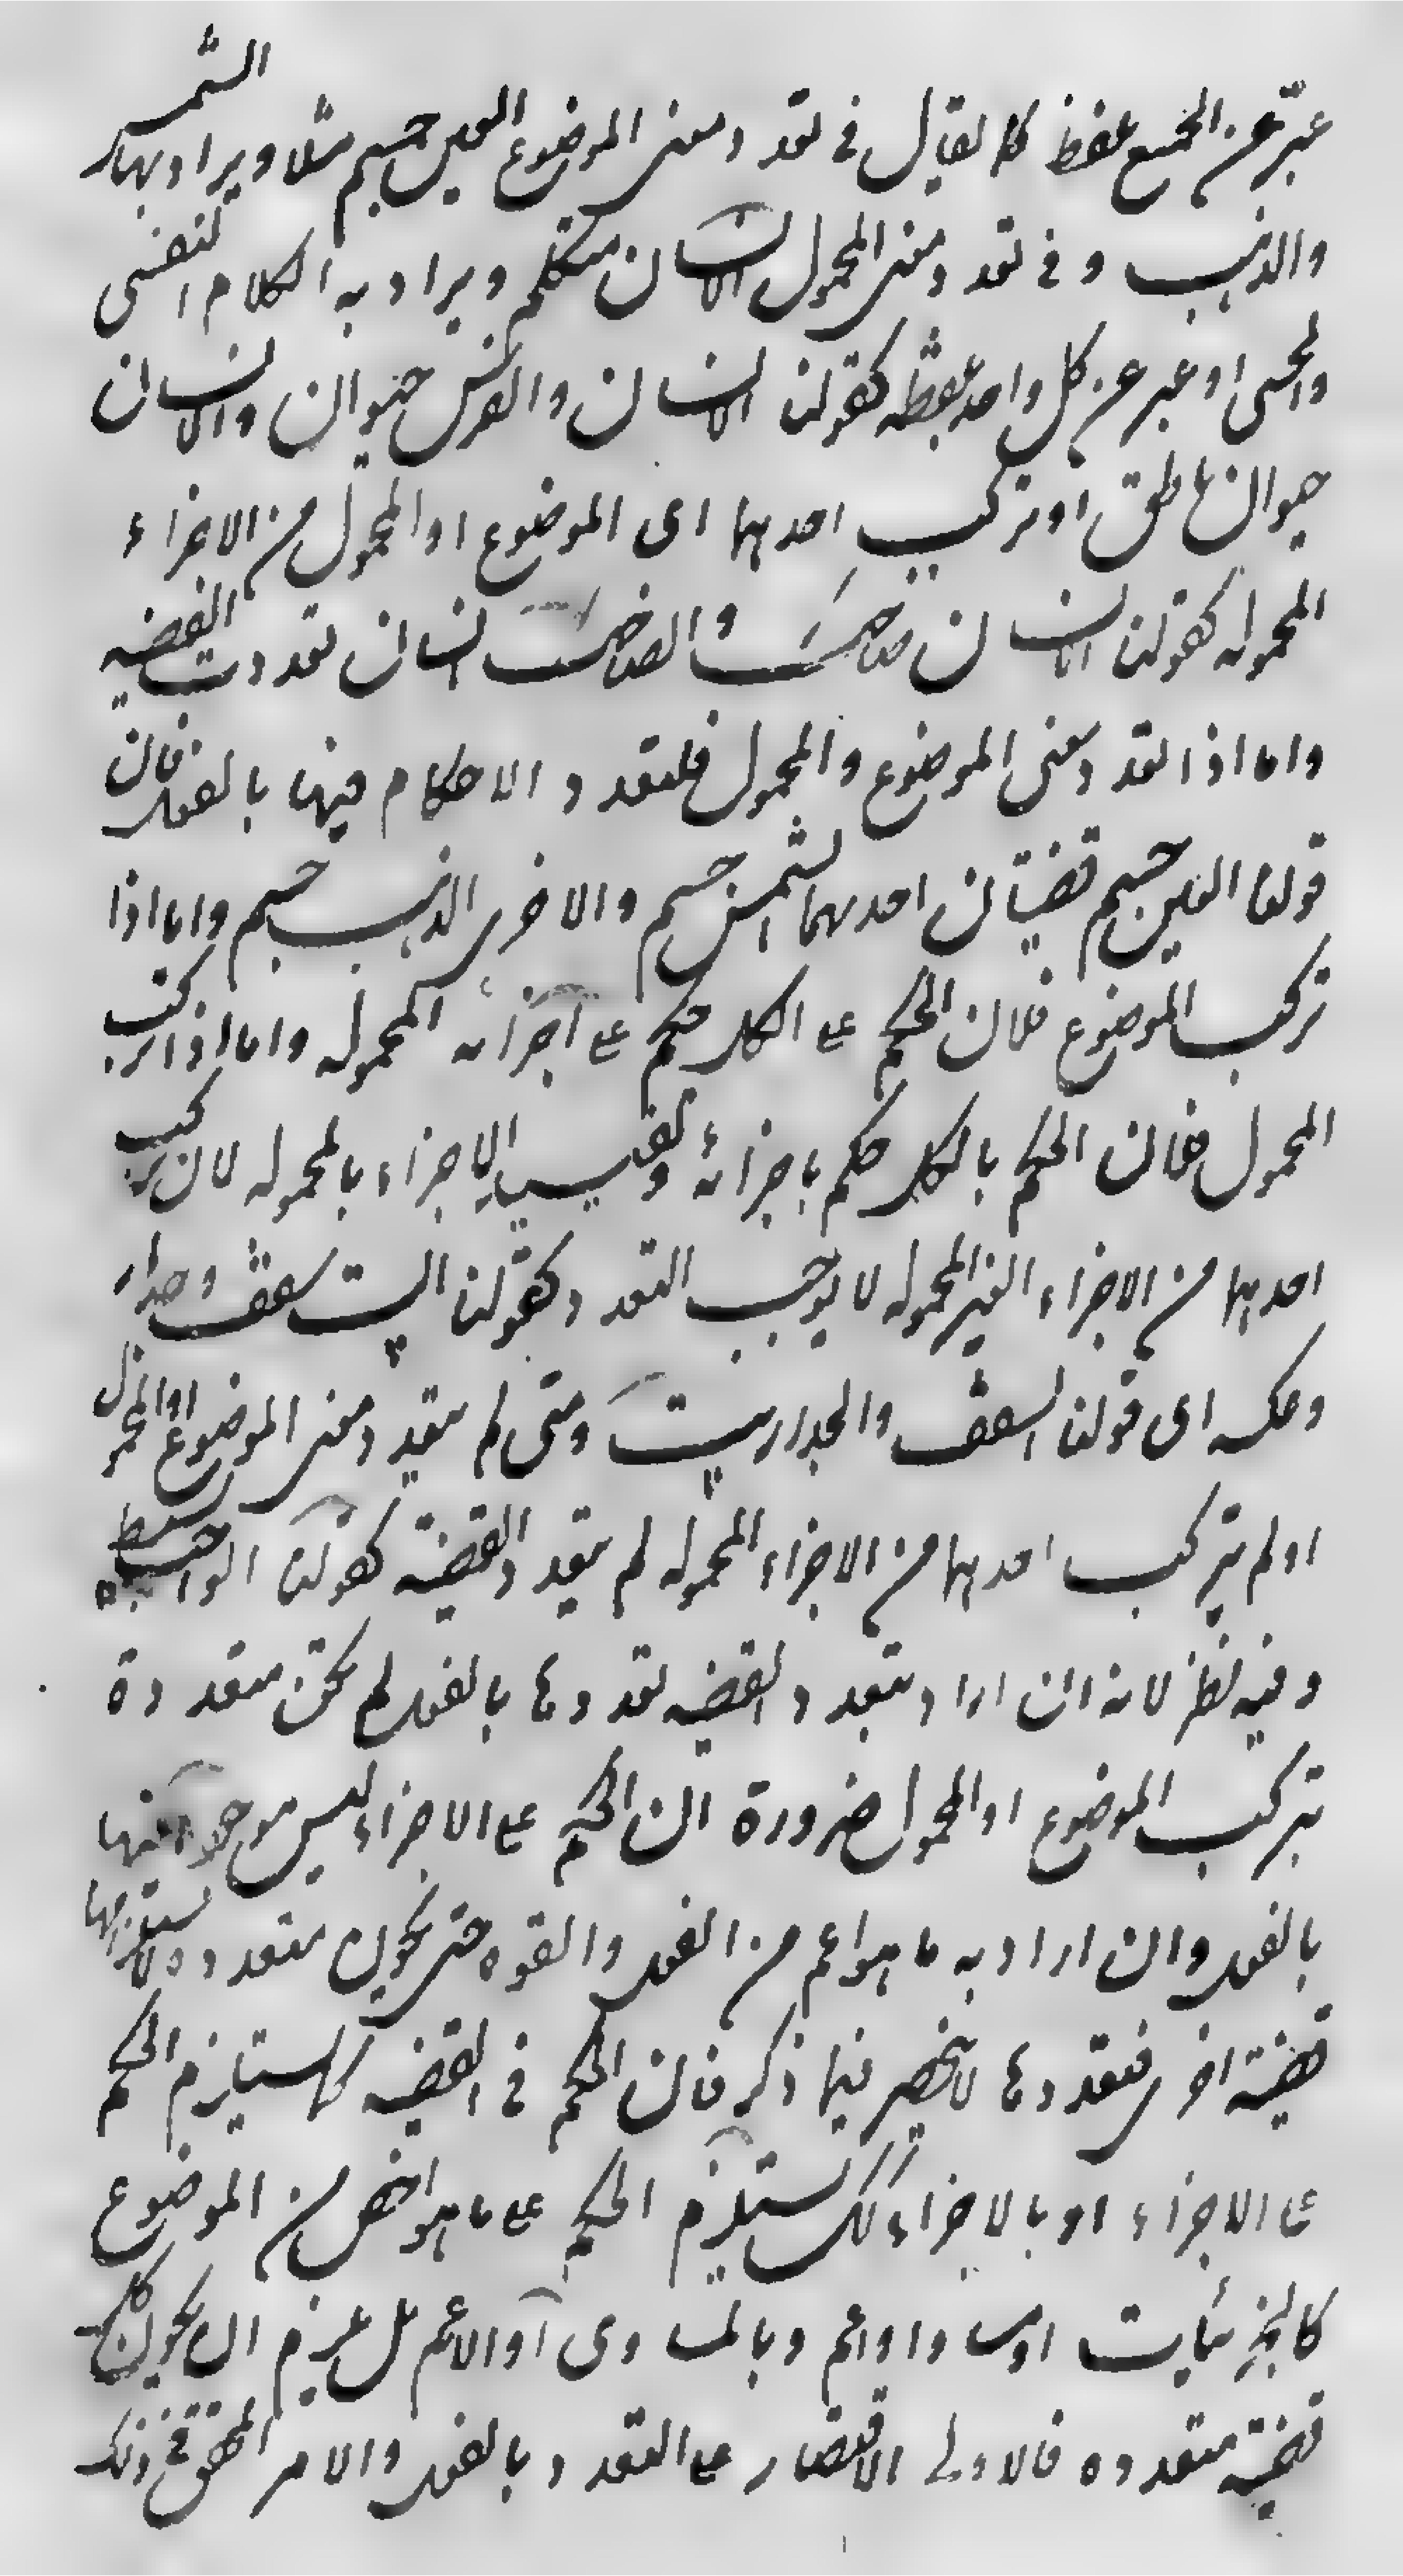 عبّر عن الجميع بلفظ كما يقال فى تعدد معنى الموضوع العين جسم مثلا ويراد بها الشمس
والذهب و فى تعدد معنى المحمول الانسان متكلم ويراد به الكلام النفسى
والحسى او عبر عن كل واحد بلفظه كقولنا الانسان والفرس حيوان والانسان
حيوان ناطق او تركب احدهما اى الموضوع او المحمول من الاجزاء
المحموله كقولنا الانسان ضاحك والضاحك انسان تعددت القضيه
واما اذا تعدد معنى الموضوع والمحمول فلتعدد الاحكام فيها بالفعل فان
قولنا العين جسم قضيتان احدهما الشمس جسم والاخرى الذهب جسم واما اذا
تركب الموضوع فلان الحكم على الكل حكم على اجزائه المحموله واما اذا تركب
المحمول فلان الحكم بالكل حكم باجزائه وتقييد الاجزاء بالمحموله لان تركب
احدهما من الاجزاء الغير المحموله لا يوجب التعدد كقولنا البيت سقف وجدار
وعكسه اى قولنا السقف والجدار بيت ومتى لم يتعدد معنى الموضوع او المحمول
او لم يتركب احدهما من الاجزاء المحموله لم يتعدد القضية كقولنا الواجب بسيط
وفيه نظر لانه ان اراد بتعدد القضيه تعددها بالفعل لم يكن متعددة
بتركب الموضوع او المحمول ضرورة ان الحكم على الاجزاء ليس موجودا فيها
بالفعل وان اراد به ما هو اعم من الفعل والقوه حتى يكون متعدده لاستلزامها
قضية اخرى فتعددها لا ينحصر فيما ذكر فان الحكم فى القضيه كما يستلزم الحكم
على الاجزاء او بالاجزاء كذلك يستلزم الحكم على ما هو اخص من الموضوع
كالجزئيات او مساو او اعم وبالمساوى او الاعم بل يلزم ان يكون كل
قضية متعدده فالاولى الاقتصار على التعدد بالفعل والامر المحقق فى ذلك